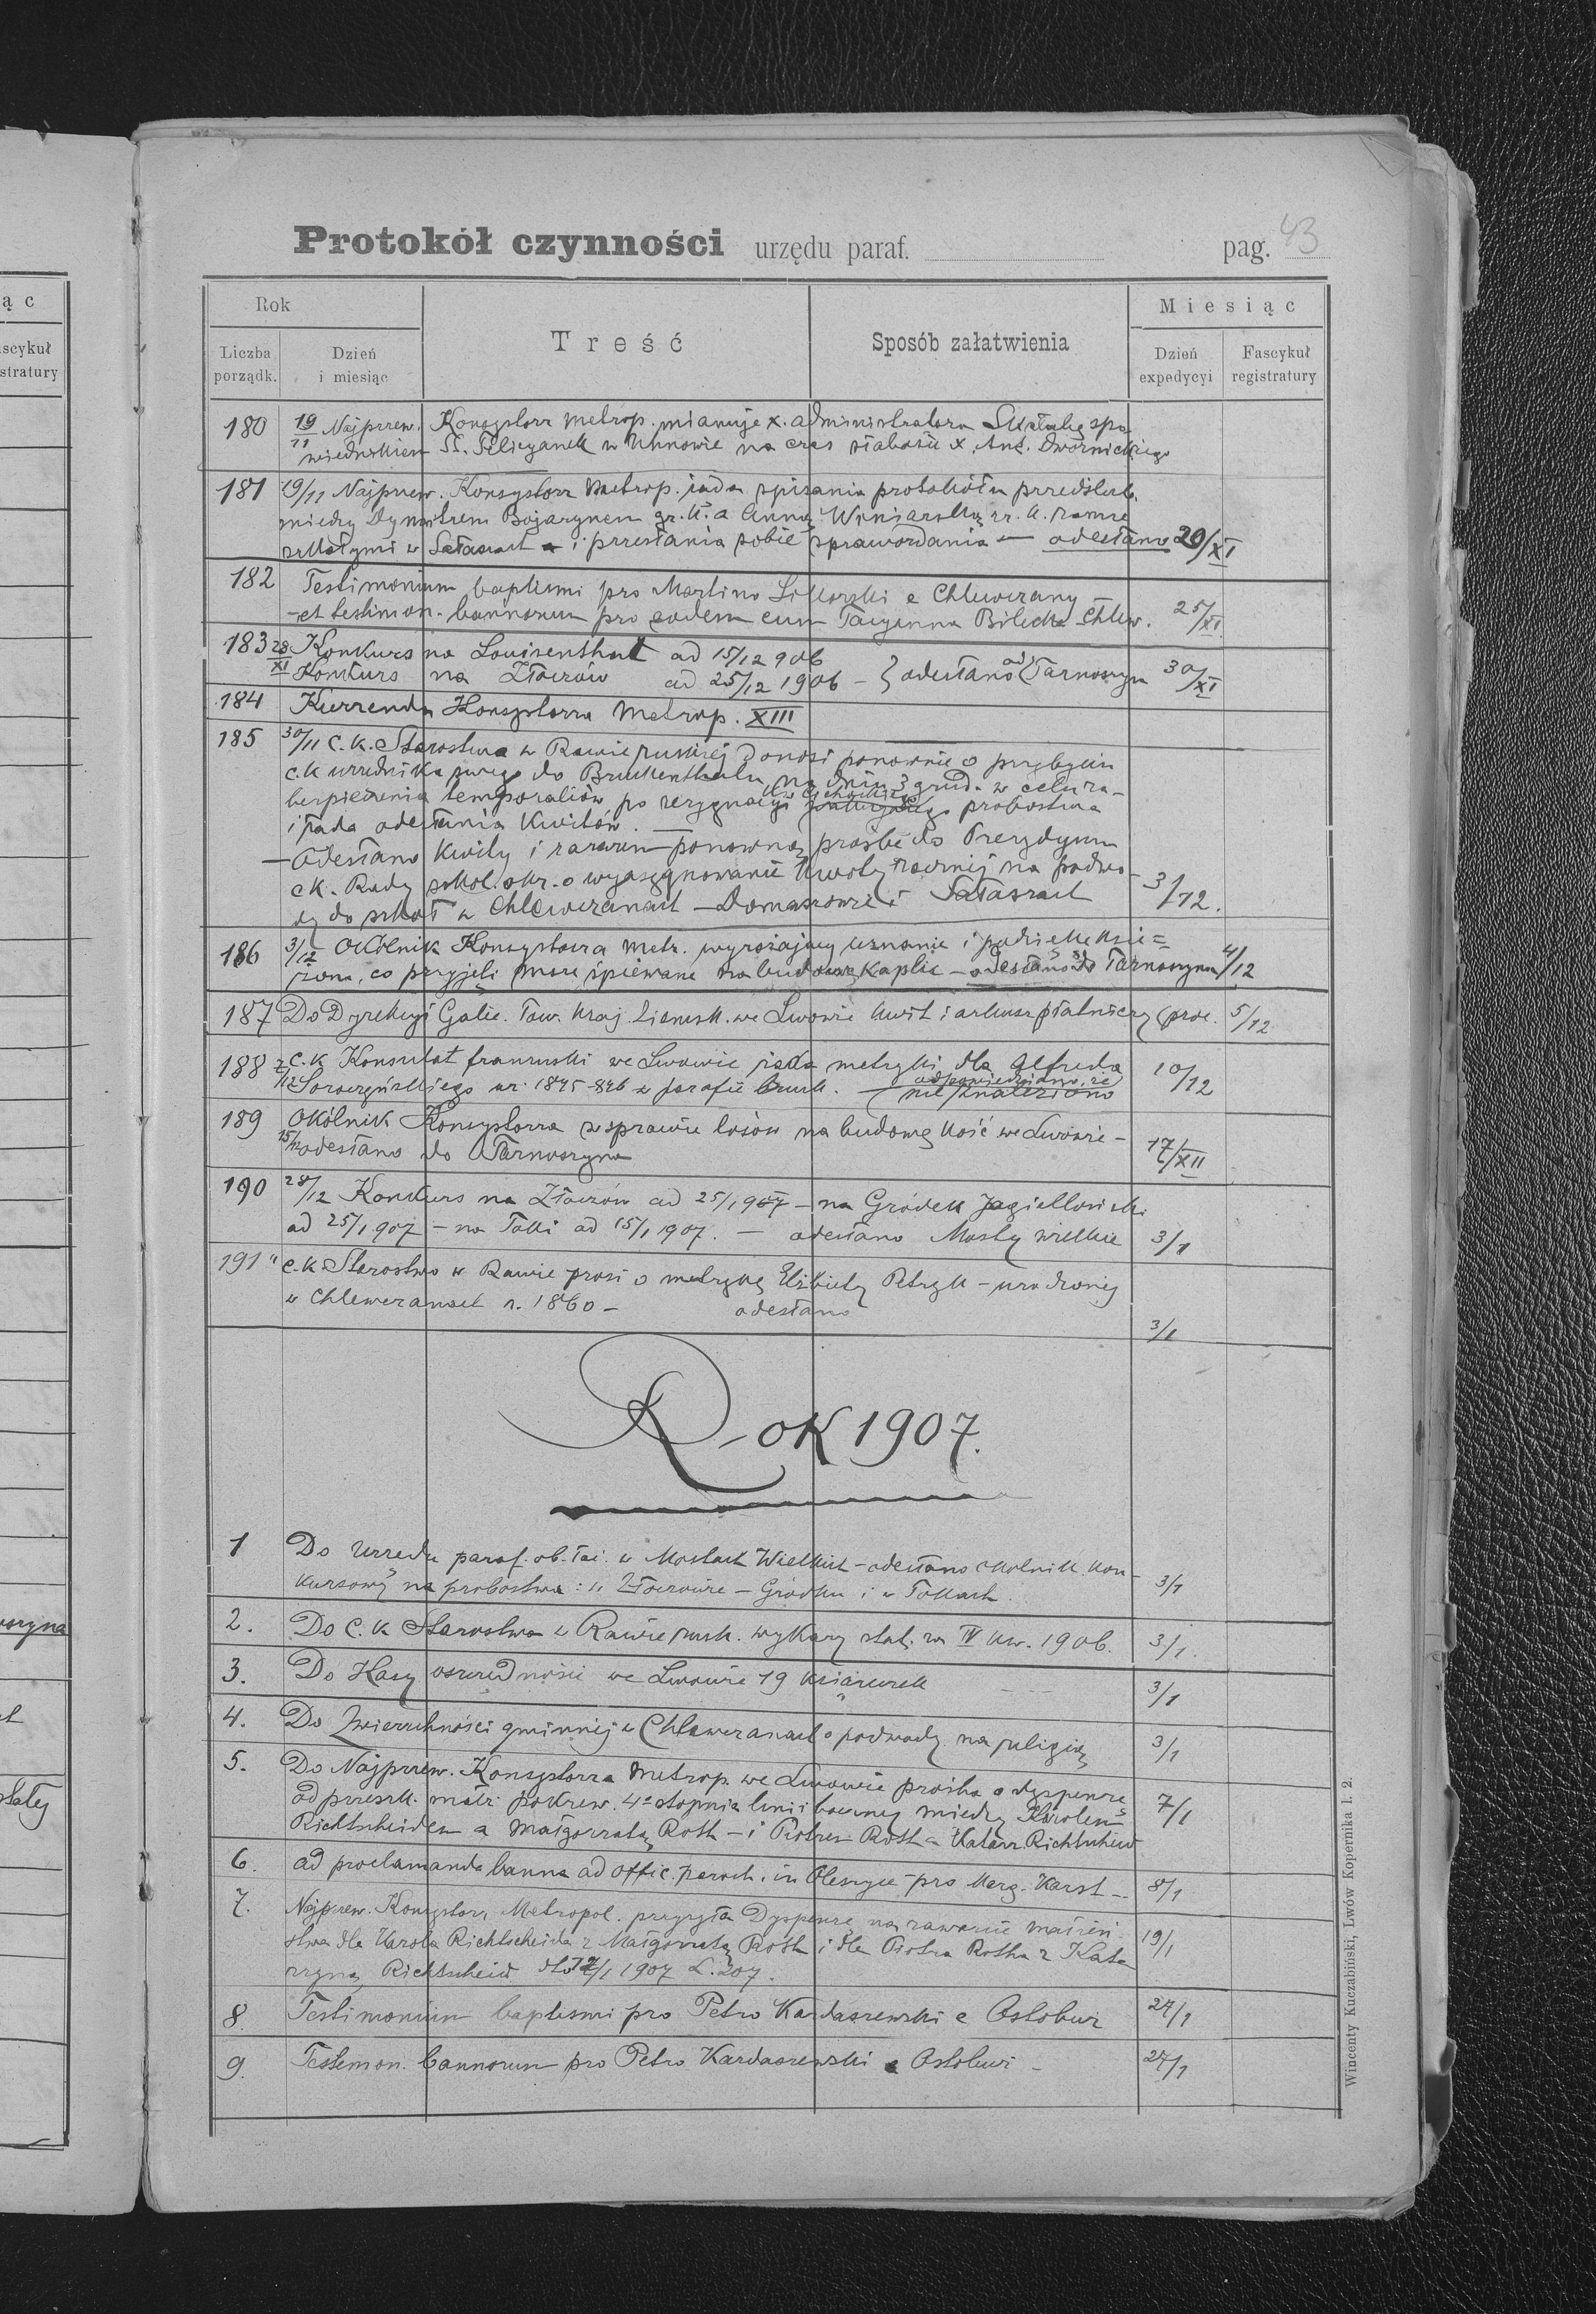 ą c
scykuł
stratury
Protokół czynności urzędu paraf. pag. 43
Rok
Miesiąc
Liczba porządk.
Dzień i miesiąc
Treść
Sposób załatwienia
Dzień expedycyi
Fascykuł registratury
180 19/11 Najprzew. Konsystorz Metrop. mianuje X. administratora Skałubę spo
wiednikiem SS. Felicyanek w Uhnowie na czas słabości X. Ant. Dwornickiego
181 19/11 Najprzew. Konsystorz Metrop. żąda spisania protokółu przedślub.
między Dymitrem Bojarynem gr. k. a Anną Winiarską rz. k. zamie
szkałymi w Sałaszach i przesłania sobie sprawozdania – odesłano 20/XI
182 Testimonium baptismi pro Martino Sikorski e Chlewczany –
– et testimon. bannorum pro eodem cum Tacyanna Bilecka Chlew. 25/XI
183 28/XI Konkurs na Louisenthal ad 15/12 906
Konkurs na Złoczów ad 25/12 1906 – } odesłano do Tarnoszyn 30/XI
184 Kurrenda Konsystorza Metrop. XIII
185 30/11 C. K. Starostwa w Rawie ruskiej donosi ponownie o przybyciu
c. k urzędnika swego do Bruckenthalu na dniu 3 grud. w celu za-
bezpieczenia temporaliów po rezygnacyi probostwa
i żąda odesłania kwitów. –
– Odesłano kwity i zarazem ponowną prośbę do Prezydyum
ck. Rady szkol. okr. o wyasygnowanie kwoty rocznej na podwo-
dy do szkół w Chlewczanach – Domaszowie i Sałaszach 3/12.
186 3/12 Okólnik Konsystorza Metr. wyrażający uznanie i podziękę księ=
żom, co przyjęli msze śpiewane na budowę kaplic – odesłano do Tarnoszyna 4/12
187 Do Dyrekcyi Galic. Tow. kraj. ziemsk. we Lwowie kwit i arkusz płatniczy (proc. 5/12
188 7/12 C. k Konsulat francuski we Lwowie żąda metryki dla Alfreda
Soroczyńskiego ur. 1845-846 w parafii Bruck. – odpowiedziano, że
nie znaleziono 10/12
189 Okólnik Konsystorza w sprawie losów na budowę kość. we Lwowie –
15/12 odesłano do Tarnoszyna 17/XII
190 28/12 Konkurs na Złoczów ad 25/1 907 – na Gródek Jagielloński
ad 25/1 907 – na Toki ad 15/1 1907. – odesłano Mosty wielkie 3/1
191 " C. k Starostwo w Rawie prosi o metrykę Elżbiety Petryk – urodzonej
w Chlewczanach r. 1860 – odesłano 3/1
Rok 1907.
1 Do Urzędu paraf. ob. łac. w Mostach Wielkich – odesłano okólnik kon-
kursowy na probostwa: w Złoczowie – Gródku i w Tokach. 3/1
2. Do C. k Starostwa w Rawie rusk. wykazy stat. za IV kw. 1906. 3/1.
3. Do Kasy oszczędności we Lwowie 19 książeczek 3/1
4. Do Zwierzchności gminnej w Chlewczanach o podwody na religię 3/1
5. Do Najprzew. Konsystorza Metrop. we Lwowie prośba o dyspenzę
od przeszk. małż. pokrew. 4º stopnia linii bocznej między Karolem
Richtscheidem a Małgorzatą Roth – i Piotrem Roth a Katarz. Richtscheid 7/1
6. ad proclamanda banna ad offic. paroch. in Oleszyce – pro Marg. Karst – 8/1
7. Najprzew. Konsystorz Metropol. przysyła Dyspenzę na zawarcie małżeń
stwa dla Karola Richtscheida z Małgorzatą Roth i dla Piotra Rotha z Kata
rzyną Richtscheid dto 12/1 1907 L. 207. 19/1
8. Testimonium baptismi pro Petro Kardaszewski e Ostobuż 27/1
9. Testimon. bannorum pro Petro Kardaszewski e Ostobuż – 27/1
Wincenty Kuczabiński, Lwów Kopernika l. 2.